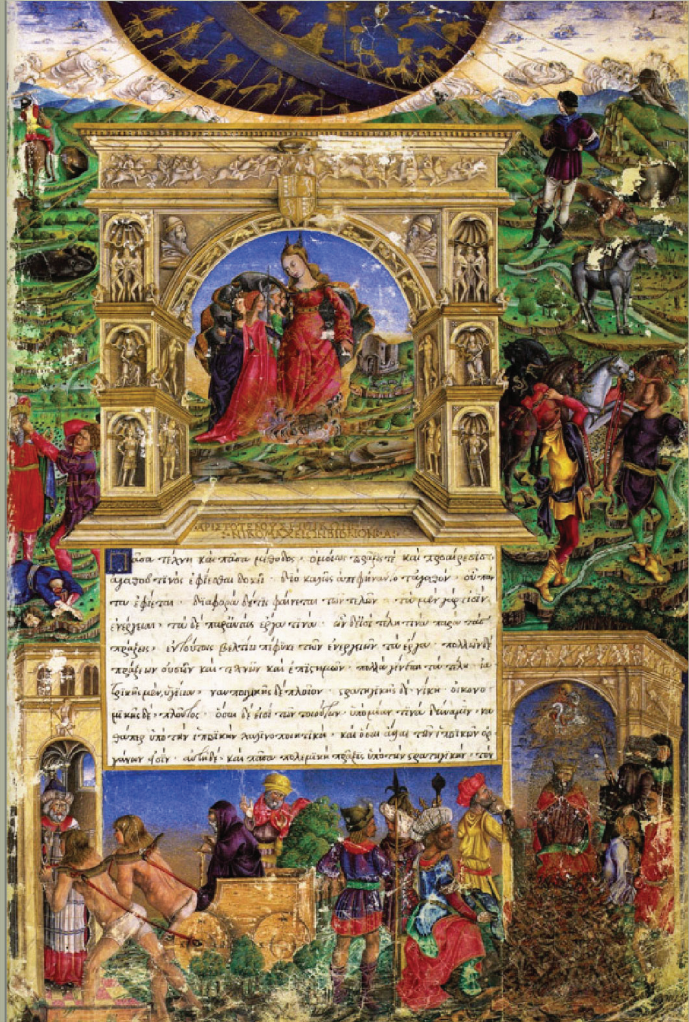 ΑΡΙΣΤΟΤΕΛΟΥΣ
ΝΙΚΟΜΑΧΕΙΩΝ
Πᾶσα τέχνη καὶ πᾶσα μέθοδος· ὁμοίως δὲ πρᾶξίς τε καὶ προαίρεσις·
ἀγαθοῦ τινὸς ἐφίεσθαι δοκεῖ· διὸ καλῶς ἀπεφήναντο τἀγαθὸν· οὗ πάν
τα ἐφίεται· διαφορὰ δέ τις φαίνεται τῶν τελῶν· τὰ μὲν γάρ εἰσιν
ἐνέργειαι· τὰ δὲ παρ' αὐτὰς ἔργα τινά· ὧν δ' εἰσὶ τέλη τινὰ παρὰ τὰς
πράξεις· ἐν τούτοις βελτίω πέφυκε τῶν ἐνεργειῶν τὰ ἔργα· πολλῶν δὲ
πράξεων οὐσῶν καὶ τεχνῶν καὶ ἐπιστημῶν· πολλὰ γίνεται τὰ τέλη· ἰα
τρικῆς μὲν ὑγίεια· ναυπηγικῆς δὲ πλοῖον· στρατηγικῆς δὲ νίκη· οἰκονο
μικῆς δὲ πλοῦτος· ὅσαι δ' εἰσὶ τῶν τοιούτων ὑπὸ μίαν τινὰ δύναμιν· κα
θάπερ ὑπὸ τὴν ἱππικὴν χαλινοποιητικὴ· καὶ ὅσαι ἄλλαι τῶν ἱππικῶν ὀρ
γάνων εἰσίν· αὕτη δὲ καὶ πᾶσα πολεμικὴ πρᾶξις ὑπὸ τὴν στρατηγικὴν· τὸν